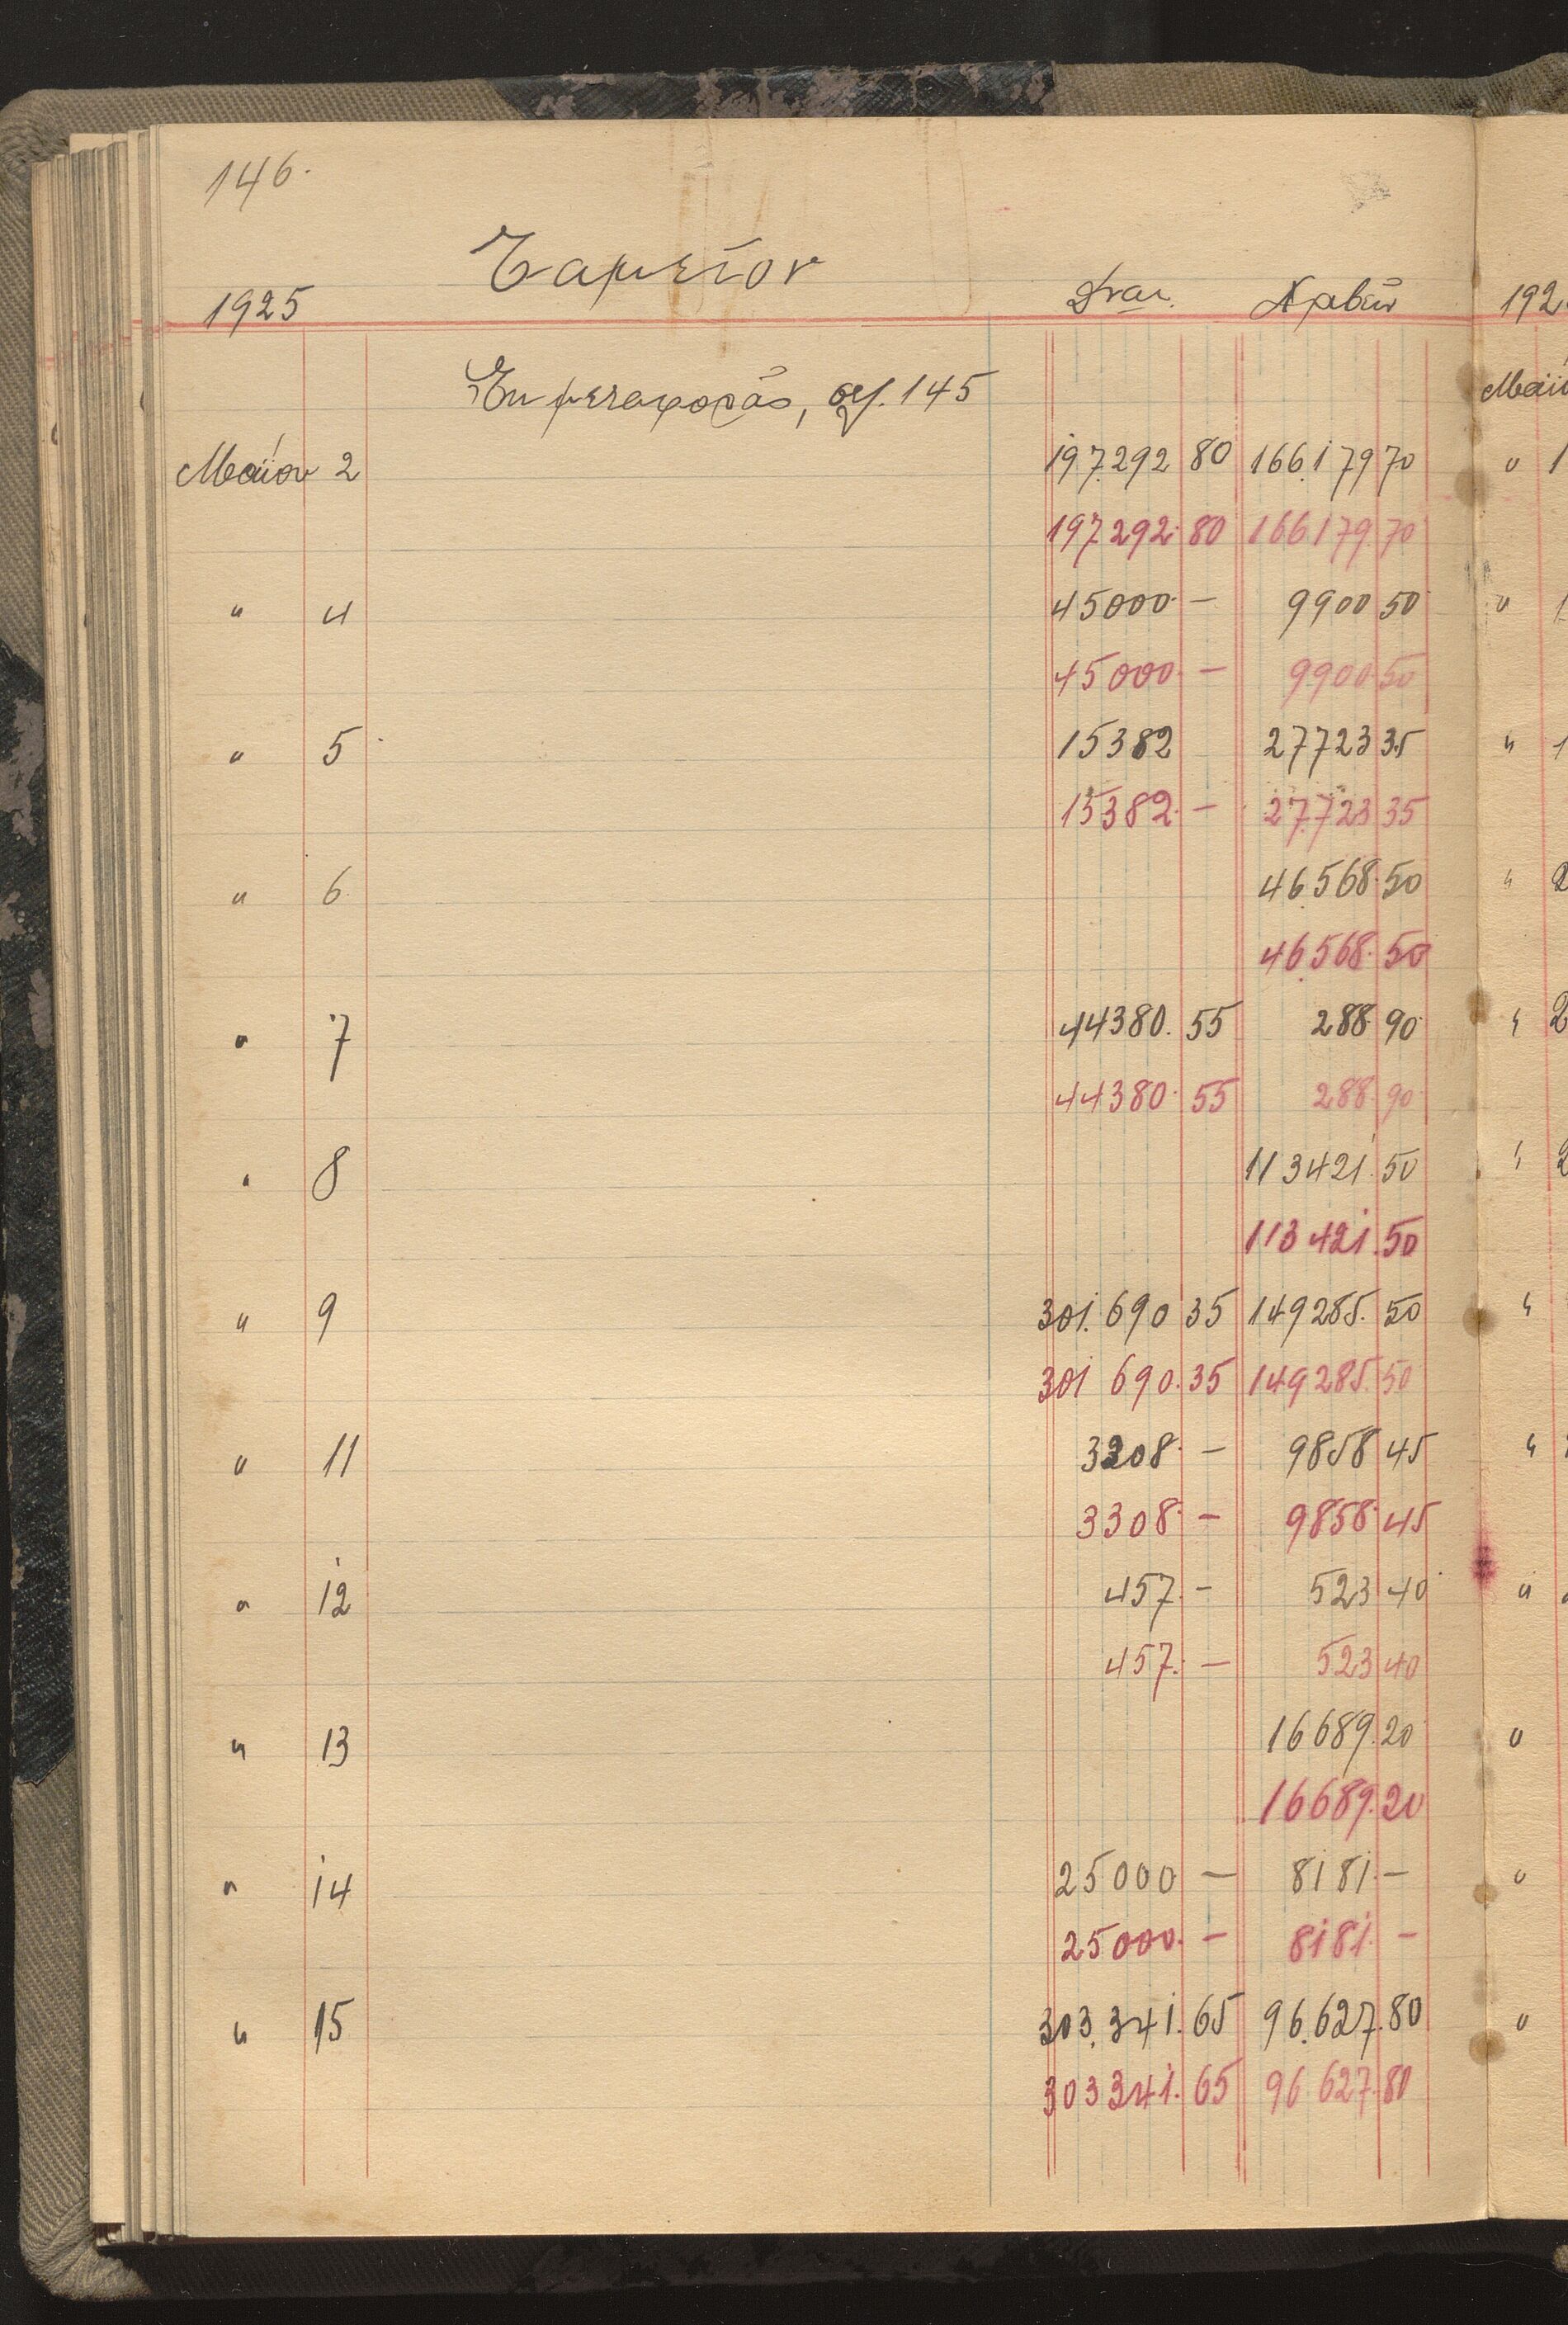 146.
Ταμεῖον
1925 Δναι. Λαβεῖν
Ἐκ μεταφορᾶς, σελ. 145
Μαΐου 2 197.292 80 166.179 70
197.292. 80 166.179. 70
" 4 45000. — 9900 50
45000. — 9900 50
" 5 15382 27723 35
15382. — 27.723 35
" 6 46.568. 50
46.568. 50
" 7 44380. 55 288. 90
44380. 55 288. 90
" 8 113421. 50
113421. 50
" 9 301.690 35 149285. 50
301 690. 35 149285. 50
" 11 3308. — 9858 45
3308. — 9858. 45
" 12 457. — 523 40
457. — 523 40
" 13 16689. 20
16689. 20
" 14 25000 — 8181. —
25000. — 8181. —
" 15 303.341. 65 96.627. 80
303341. 65 96.627. 80